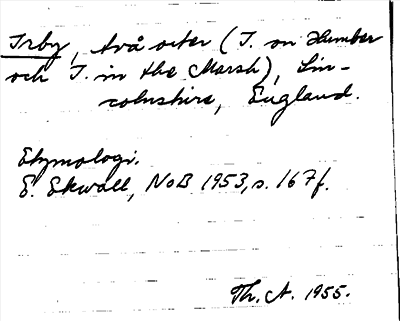 Irby, två orter (I. on Humber
och I. in the Marsh), Lin-
colnshire, England.
Etymologi.
E. Ekwall, NoB 1953, s. 167f.
Th. A. 1955.